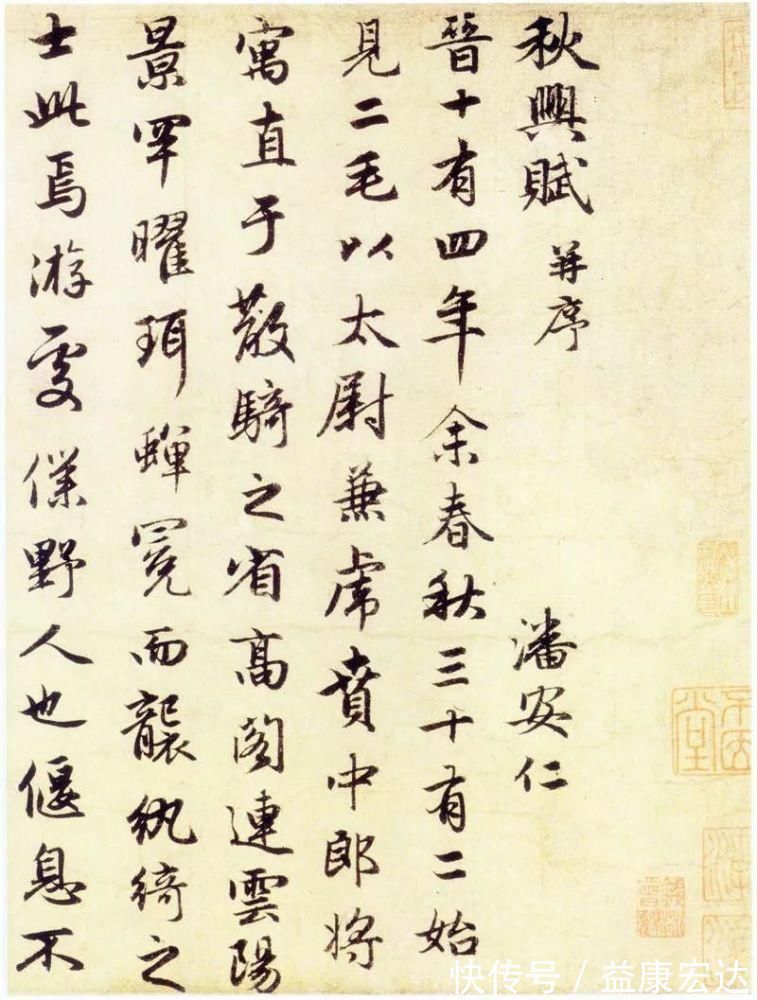 秋興賦 并序
潘安仁
晉十有四年余春秋三十有二始
見二毛以太尉兼虎賁中郎將
寓直于散騎之省高閣連雲陽
景罕曜珥蟬冕而襲紈綺之
士此焉游處僕野人也偃息不
快传号 / 益康宏达